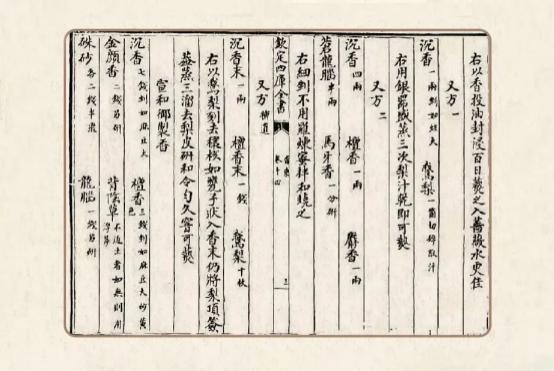 右以香投油封浸百日爇之入薔薇水更佳
又方一
沉香 一兩剉如炷大 鵞梨 一箇切碎取汁
右用銀器盛蒸三次梨汁乾即可爇
又方二
沉香 四兩 檀香 一兩 麝香 一兩
茗龍腦 半兩 馬牙香 一分研
右細剉不用羅煉蜜拌和燒之
欽定四庫全書 香乘 卷十四 三
又方 補遺
沉香末 一兩 檀香末 一錢 鵞梨 十枚
右以鵞梨刻去穰核如甕子狀入香末仍將梨頂簽
蓋蒸三溜去梨皮研和令勻久窨可爇
宣和御製香
沉香 七錢剉如麻豆大 檀香 三錢剉如麻豆大炒黃色
金顏香 二錢另研 背陰草 不近土者如無則用浮萍
硃砂 各二錢半飛 龍腦 一錢另研